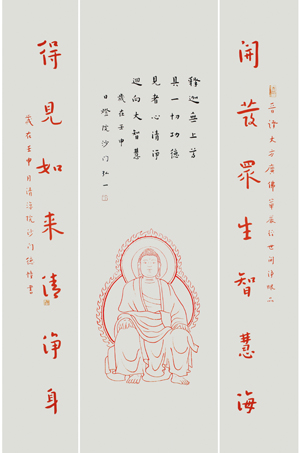 開發眾生智慧海
晉譯大方廣佛華嚴經世間淨眼品
釋迦無上尊
具一切功德
見者心清淨
迴向大智慧
歲在壬申
日燈院沙門弘一
得見如来清淨身
歲在壬申月清淨院沙門